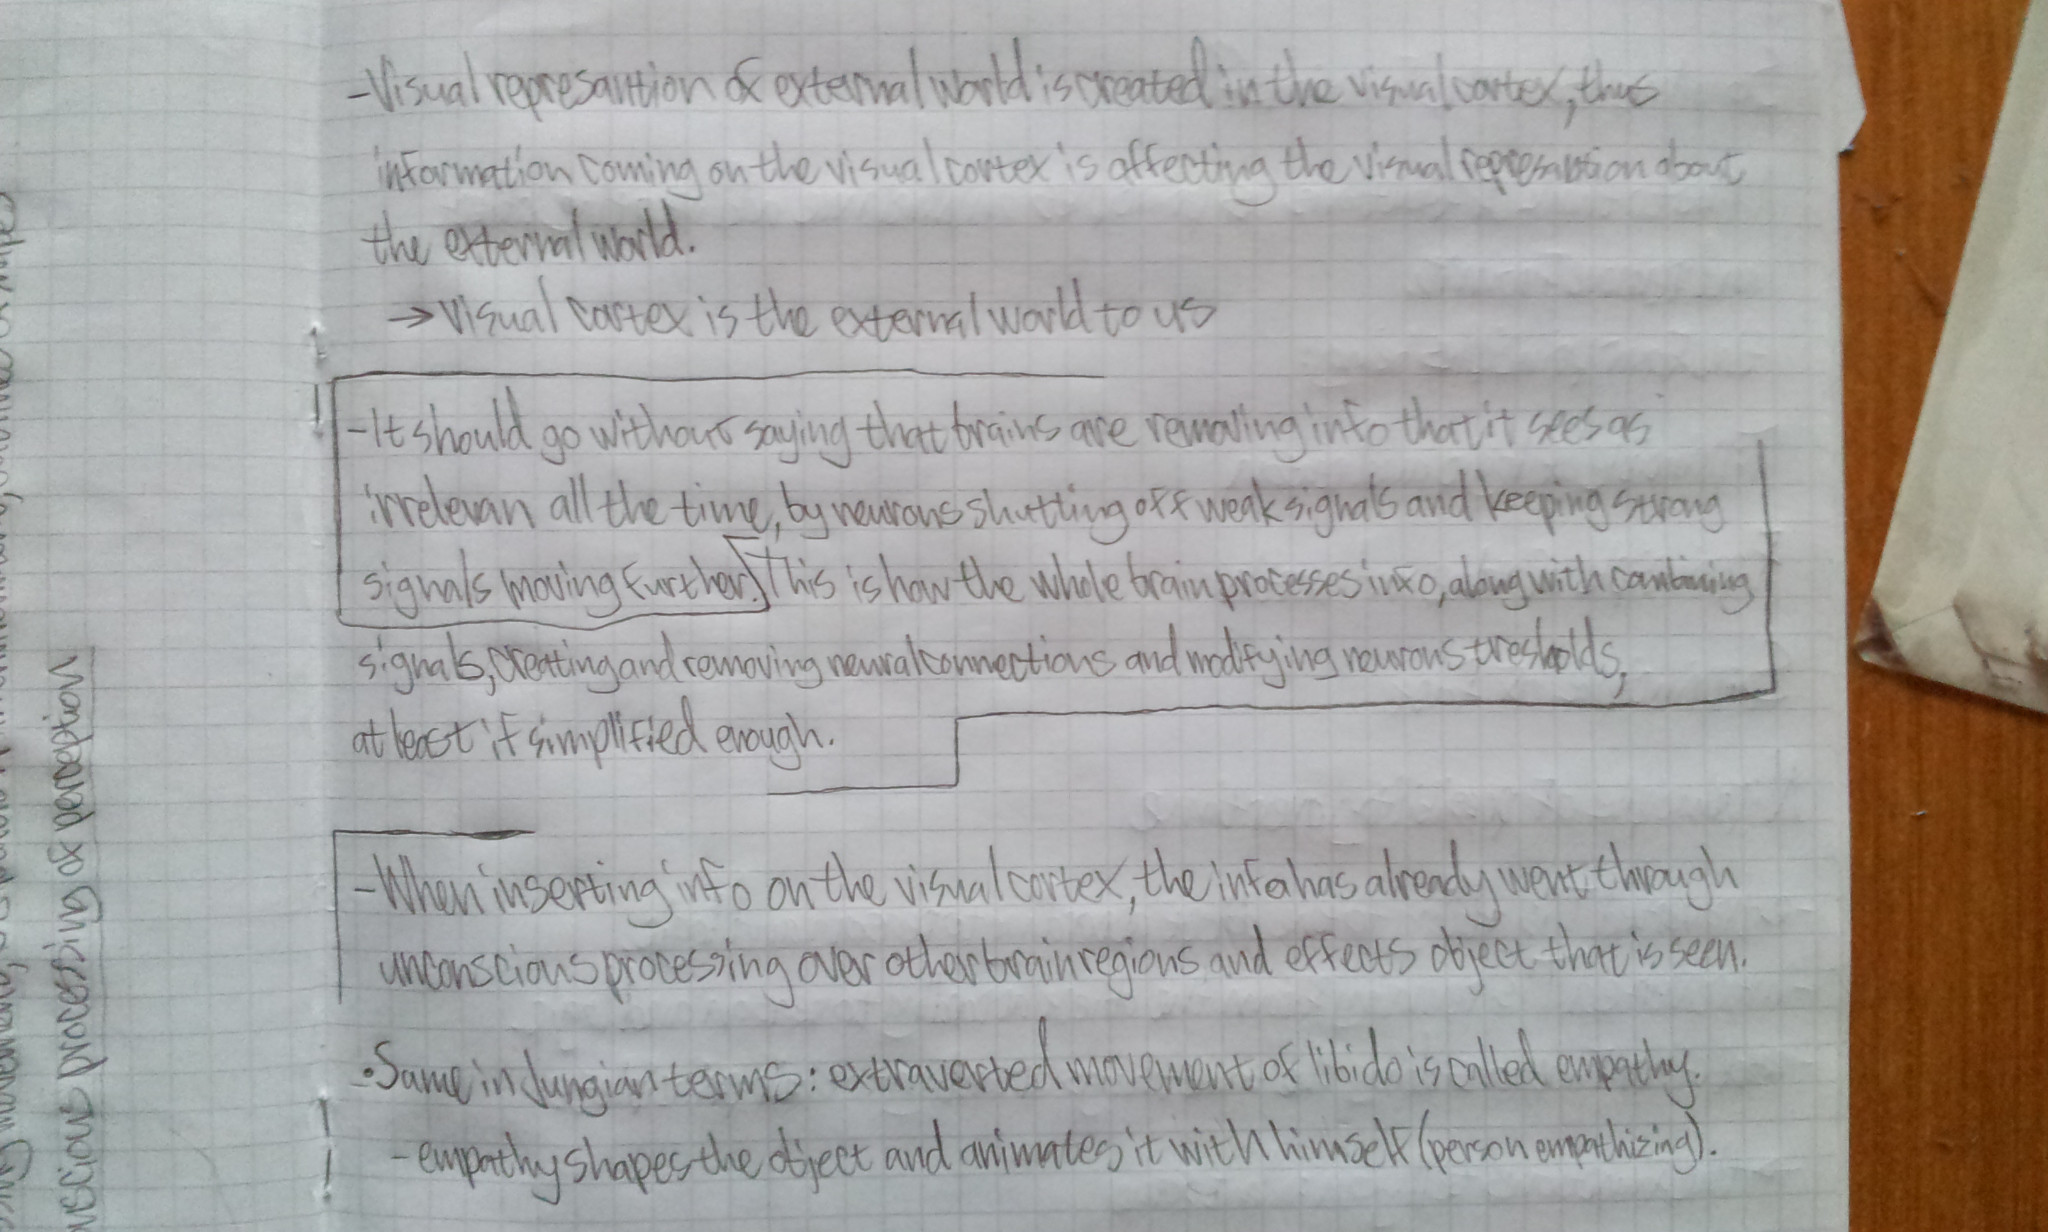 -Visual represantion of external world is created in the visual cortex, thus
information coming on the visual cortex is affecting the visual represantion about
the external world.
→ Visual cortex is the external world to us
-It should go without saying that brains are removing info that it sees as
irrelevan all the time, by neurons shutting off weak signals and keeping strong
signals moving further. This is how the whole brain processes info, along with combining
signals, creating and removing neural connections and modifying neurons tresholds,
at least if simplified enough.
-When inserting info on the visual cortex, the info has already went through
unconscious processing over other brain regions and effects object that is seen.
•Same in Jungian terms: extraverted movement of libido is called empathy.
-empathy shapes the object and animates it with himself (person empathizing).
processing of perception